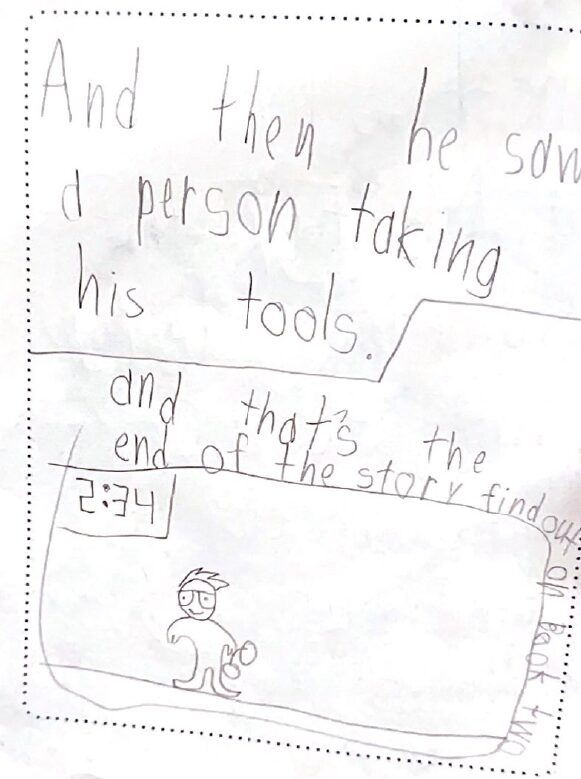 And then he saw
a person taking
his tools.
and that's the
end of the story find out
on Book two
2:34